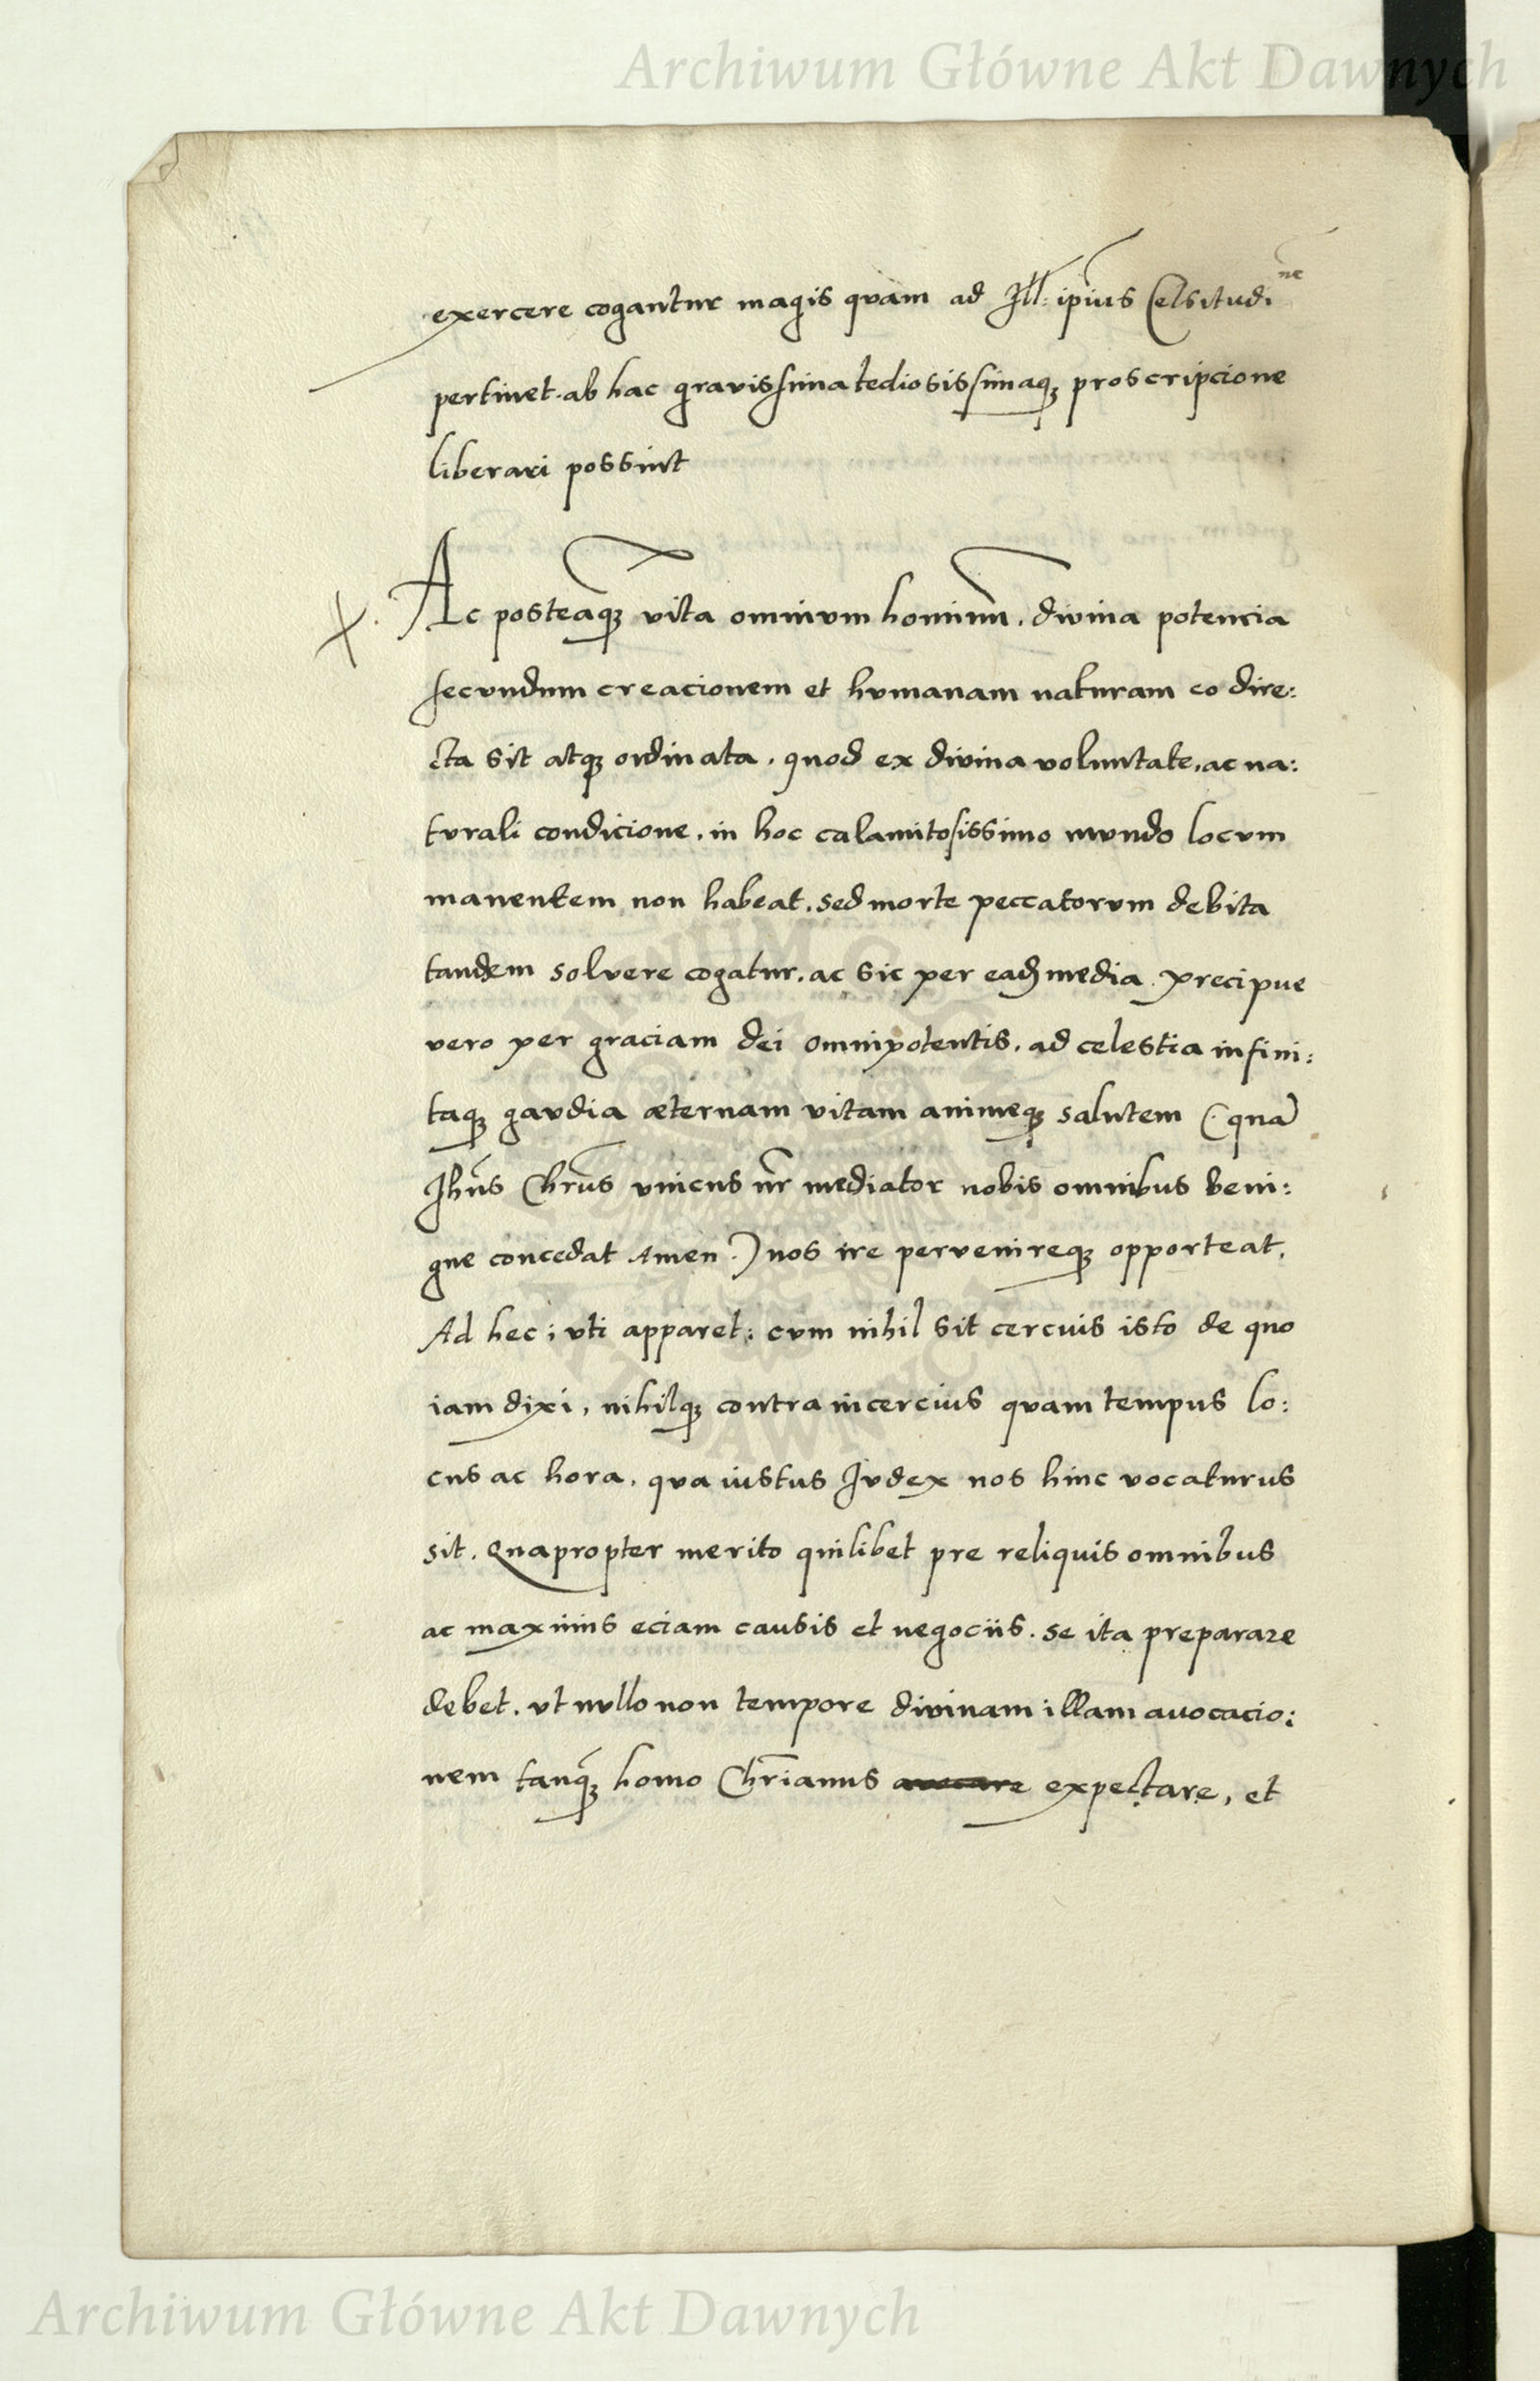 Archiwum Główne Akt Dawnych
exercere cogantur magis quam ad Ill: ipius Celsitudine
pertinet. ab hac gravissima tediosissimaqȝ proscripcione
liberari possint
X. Ac posteaqȝ vita omnivm hominū. divina potencia
secundum creacionem et hvmanam naturam eo dire:
cta sit atqȝ ordinata. quod ex divina voluntate, ac na:
tvrali condicione, in hoc calamitosissimo mvndo locvm
manentem non habeat. sed morte peccatorvm debita
tandem solvere cogatur. ac sic per eadȝ media. precipue
vero per graciam dei omnipotentis. ad celestia infini:
taqȝ gavdia æternam vitam animeqȝ salutem (. quā
Jhūs Chrūs vnicus nr̄ mediator nobis omnibus beni:
gne concedat Amen.) nos ire pervenireqȝ opporteat.
Ad hec; vti apparet: cvm nihil sit cercius isto de quo
iam dixi, nihilqȝ contra incercius qvam tempus lo:
cus ac hora. qva iustus Jvdex nos hinc vocaturus
sit. Quapropter merito quilibet pre reliquis omnibus
ac maximis eciam causis et negociis. se ita preparare
debet. vt nvllo non tempore divinam illam avocacio:
nem tanqȝ homo Chrīanus expectare, et
ARCHIWUM GŁÓWNE AKT DAWNYCH
Archiwum Główne Akt Dawnych